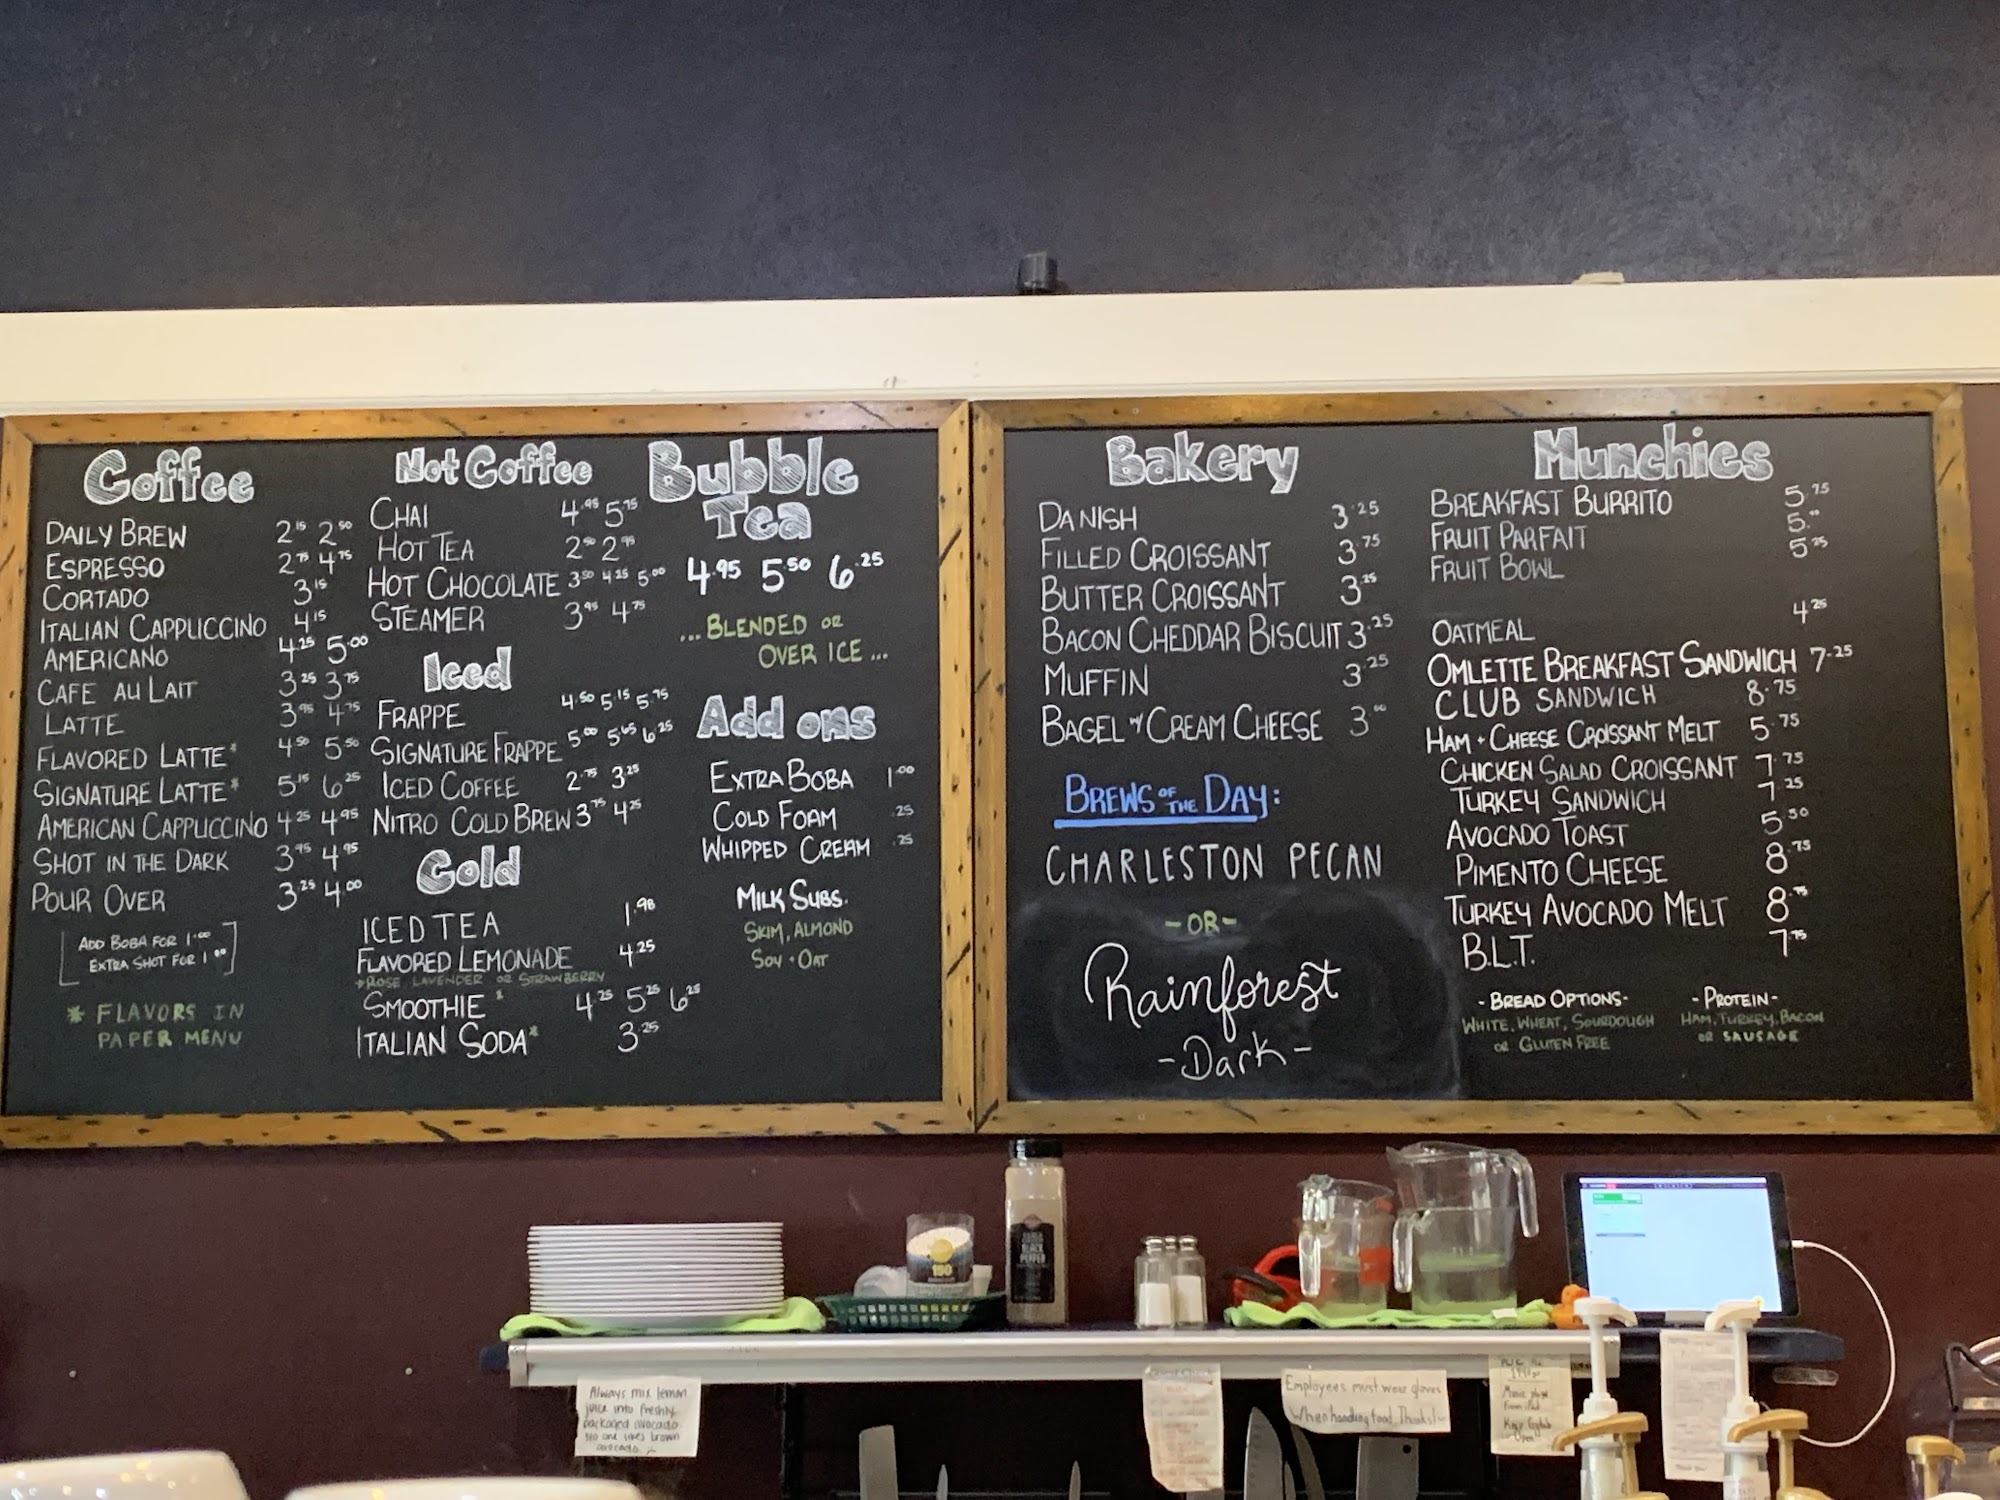 Coffee
DAILY BREW 2.15 2.50
ESPRESSO 2.75 4.75
CORTADO 3.15
ITALIAN CAPPUCCINO 4.15
AMERICANO 4.25 5.00
CAFE AU LAIT 3.25 3.75
LATTE 3.95 4.75
FLAVORED LATTE* 4.50 5.50
SIGNATURE LATTE* 5.15 6.25
AMERICAN CAPPUCCINO 4.25 4.95
SHOT IN THE DARK 3.95 4.95
POUR OVER 3.25 4.00
ADD BOBA FOR 1.00
EXTRA SHOT FOR 1.00
* FLAVORS IN
PAPER MENU
Not Coffee
CHAI 4.95 5.75
HOT TEA 2.50 2.95
HOT CHOCOLATE 3.50 4.25 5.00
STEAMER 3.95 4.75
Iced
FRAPPE 4.50 5.15 5.75
SIGNATURE FRAPPE 5.00 5.65 6.25
ICED COFFEE 2.75 3.25
NITRO COLD BREW 3.75 4.25
Cold
ICED TEA 1.98
FLAVORED LEMONADE 4.25
→ROSE, LAVENDER OR STRAWBERRY
SMOOTHIE* 4.25 5.25 6.25
ITALIAN SODA* 3.25
Bubble
Tea
4.95 5.50 6.25
...BLENDED OR
OVER ICE...
Add ons
EXTRA BOBA 1.00
COLD FOAM .25
WHIPPED CREAM .25
MILK SUBS.
SKIM, ALMOND
SOY • OAT
Bakery
DANISH 3.25
FILLED CROISSANT 3.75
BUTTER CROISSANT 3.25
BACON CHEDDAR BISCUIT 3.25
MUFFIN 3.25
BAGEL W/ CREAM CHEESE 3.00
BREWS OF THE DAY:
CHARLESTON PECAN
-OR-
Rainforest
-Dark-
Munchies
BREAKFAST BURRITO 5.75
FRUIT PARFAIT 5.00
FRUIT BOWL 5.25
OATMEAL 4.25
OMLETTE BREAKFAST SANDWICH 7.25
CLUB SANDWICH 8.75
HAM + CHEESE CROISSANT MELT 5.75
CHICKEN SALAD CROISSANT 7.75
TURKEY SANDWICH 7.25
AVOCADO TOAST 5.50
PIMENTO CHEESE 8.75
TURKEY AVOCADO MELT 8.75
B.L.T. 7.75
-BREAD OPTIONS-
WHITE, WHEAT, SOURDOUGH
OR GLUTEN FREE
-PROTEIN-
HAM, TURKEY, BACON
OR SAUSAGE
BLACK
PEPPER
150
Always mix lemon
juice into freshly
packaged avocado.
No one likes brown
avocado.
Employees must wear gloves
When handling food. Thanks!
Music
from iPad
Open